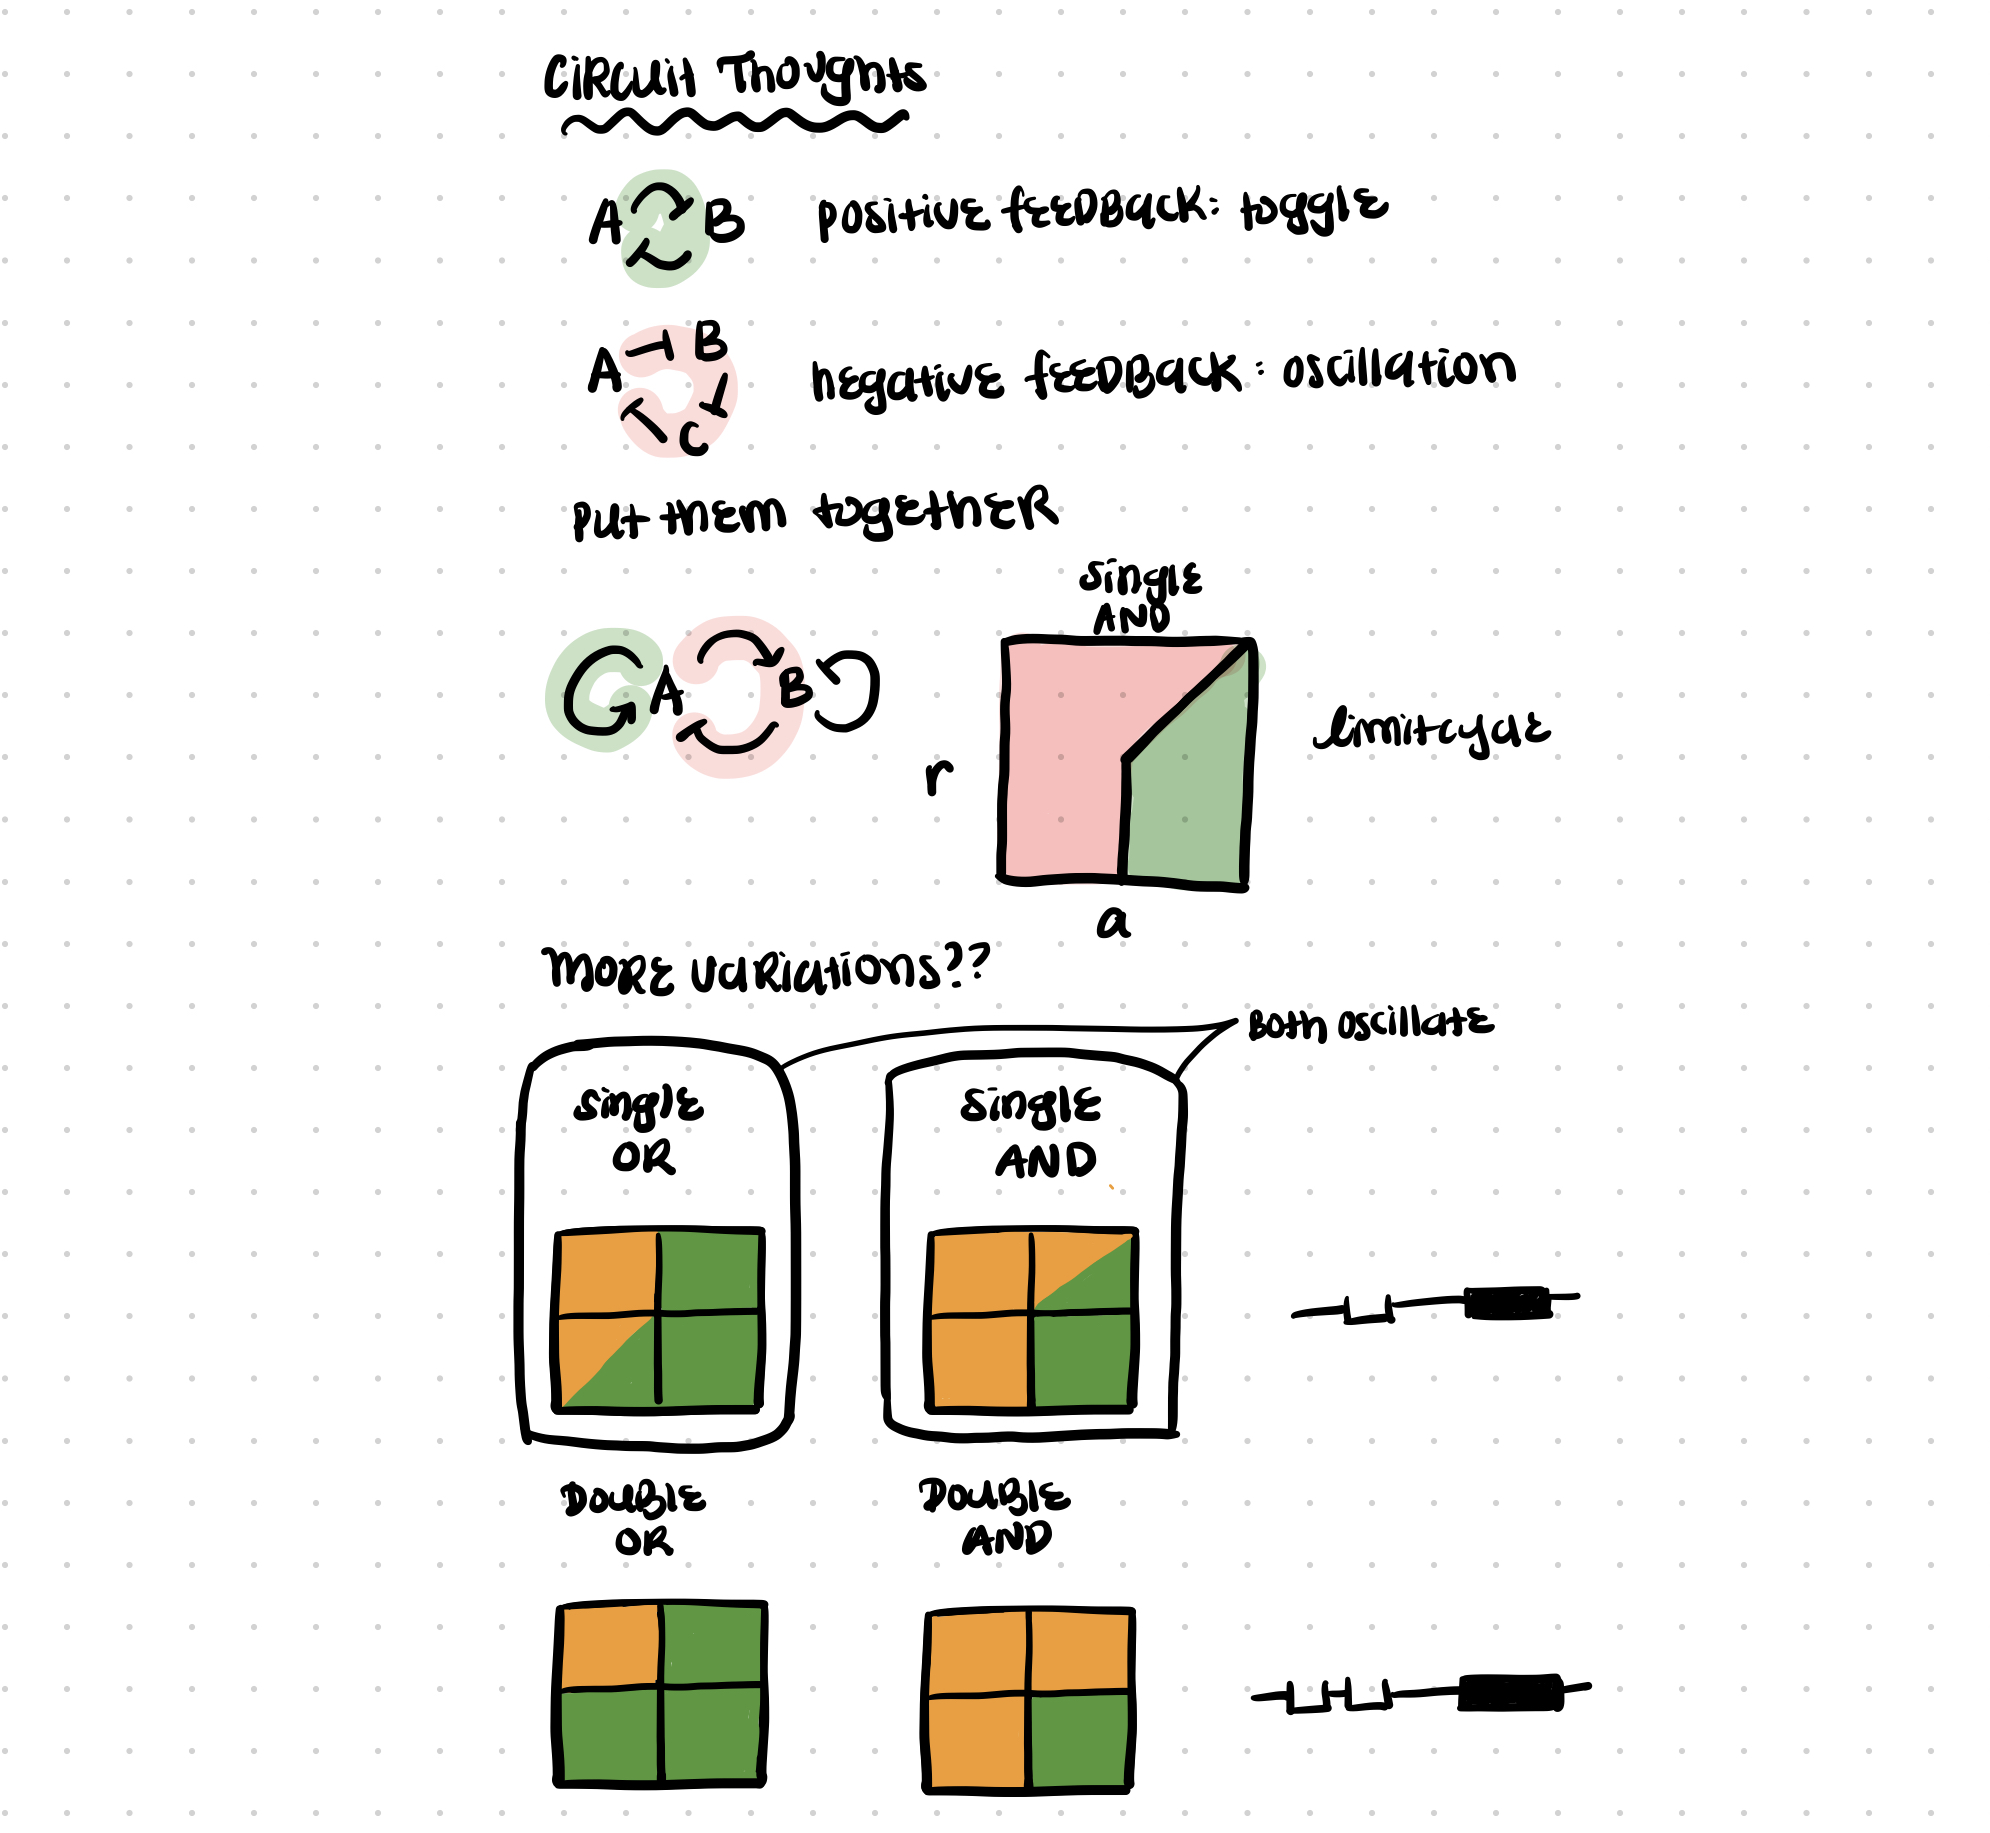 Cirkuit Thoughts
A B positive feedback: toggle
A B
C
negative feedback: oscillation
Put them together
single
AND
A B
r
limit cycle
a
More variations??
Both oscillate
single
OR
single
AND
Double
OR
Double
AND